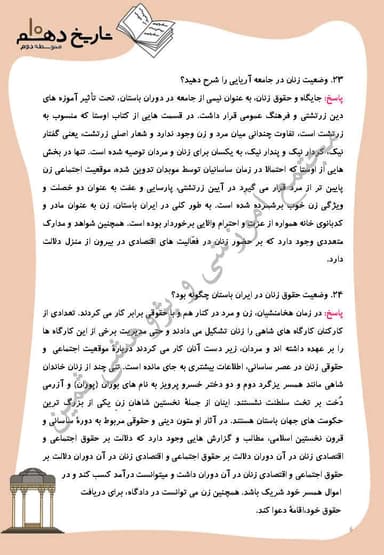 تاریخ دهم
متوسطه دوم
۲۳. وضعیت زنان در جامعه آریایی را شرح دهید؟
پاسخ: جایگاه و حقوق زنان، به عنوان نیمی از جامعه در دوران باستان، تحت تأثیر آموزه های
دین زرتشتی و فرهنگ عمومی قرار داشت. در قسمت هایی از کتاب اوستا که منسوب به
زرتشت است، تفاوت چندانی میان مرد و زن وجود ندارد و شعار اصلی زرتشت، یعنی گفتار
نیک، کردار نیک و پندار نیک، به یکسان برای زنان و مردان توصیه شده است. تنها در بخش
هایی از اوستا که احتمالا در زمان ساسانیان توسط موبدان تدوین شده، موقعیت اجتماعی زن
پایین تر از مرد قرار می گیرد در آیین زرتشتی، پارسایی و عفت به عنوان دو خصلت و
ویژگی زن خوب برشمرده شده است. به طور کلی در ایران باستان، زن به عنوان مادر و
کدبانوی خانه همواره از عزت و احترام والایی برخوردار بوده است. همچنین شواهد و مدارک
متعددی وجود دارد که بر حضور زنان در فعالیت های اقتصادی در بیرون از منزل دلالت
دارد.
۲۴. وضعیت حقوق زنان در ایران باستان چگونه بود؟
پاسخ: در زمان هخامنشیان، زن و مرد در کنار هم و با حقوقی برابر کار می کردند. تعدادی از
کارکنان کارگاه های شاهی را زنان تشکیل می دادند و حتی مدیریت برخی از این کارگاه ها
را بر عهده داشته اند و مردان، زیر دست آنان کار می کردند درباره موقعیت اجتماعی و
حقوقی زنان در عصر ساسانی، اطلاعات بیشتری به جای مانده است. تنی چند از زنان خاندان
شاهی مانند همسر یزگرد دوم و دو دختر خسرو پرویز به نام های بوران (پوران) و آزرمی
دُخت بر تخت سلطنت نشستند. اینان از جملهٔ نخستین شاهان زن یکی از بزرگ ترین
حکومت های جهان باستان هستند. در آثار و متون دینی و حقوقی مربوط به دورهٔ ساسانی و
قرون نخستین اسلامی، مطالب و گزارش هایی وجود دارد که دلالت بر حقوق اجتماعی و
اقتصادی زنان در آن دوران دلالت بر حقوق اجتماعی و اقتصادی زنان در آن دوران دلالت بر
حقوق اجتماعی و اقتصادی زنان در آن دوران داشت و میتوانست درآمد کسب کند و در
اموال همسر خود شریک باشد. همچنین زن می توانست در دادگاه، برای دریافت
حقوق خود،اقامهٔ دعوا کند.